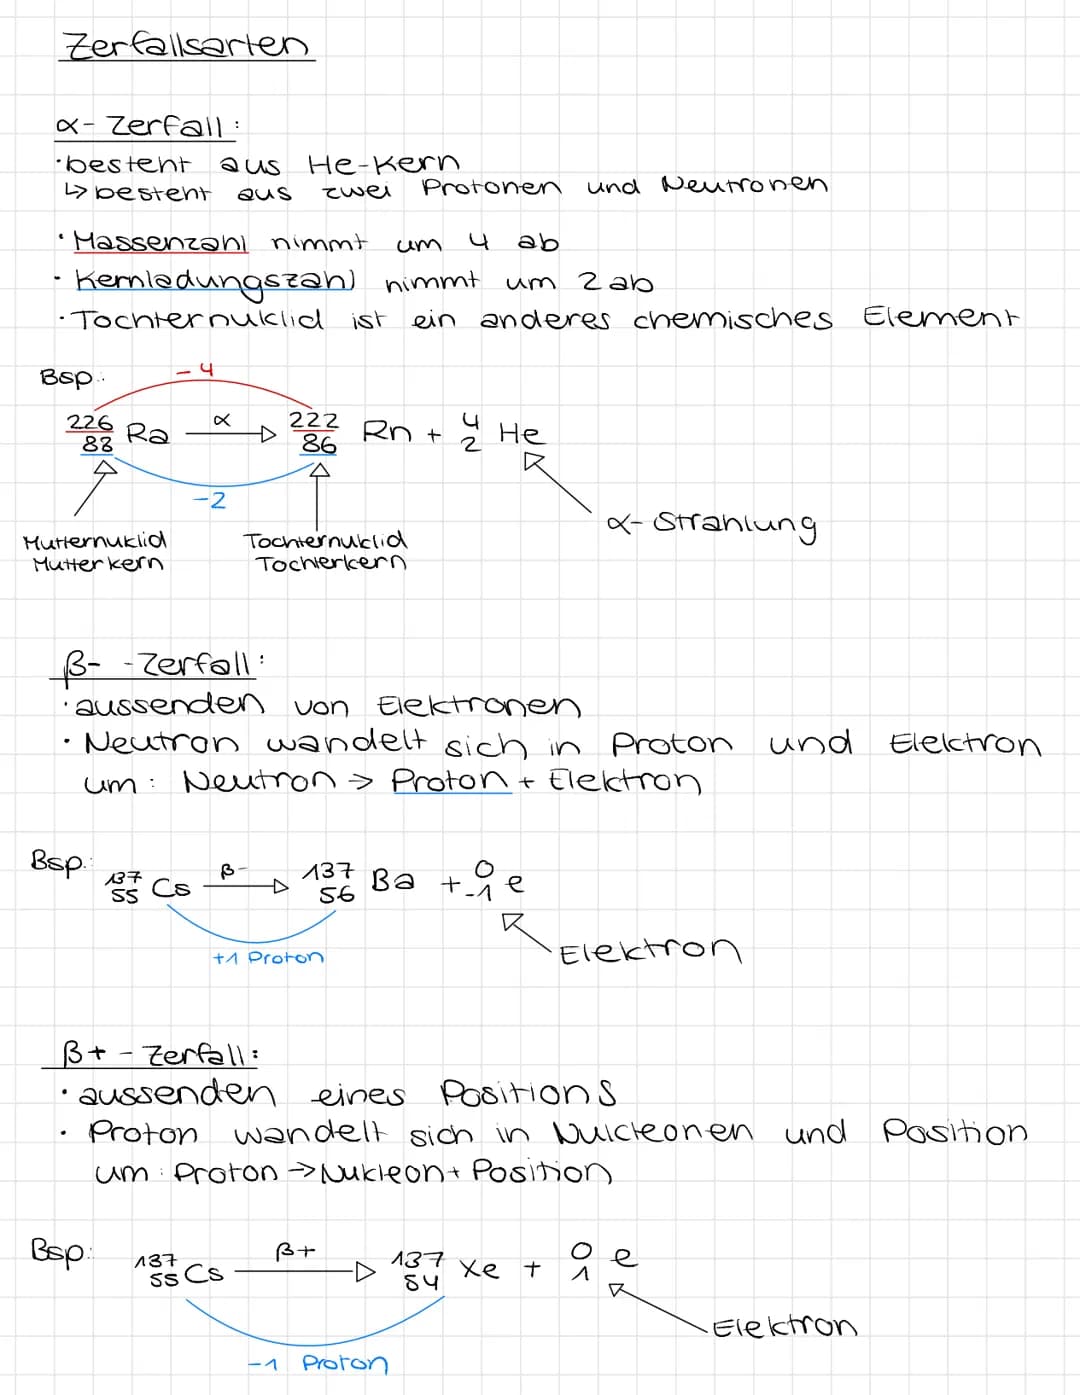 Zerfallsarten
α- Zerfall:
·besteht aus He-Kern
↳ besteht aus zwei Protonen und Neutronen
· Massenzahl nimmt um 4 ab
· Kernladungszahl nimmt um 2 ab
· Tochternuklid ist ein anderes chemisches Element
Bsp.:
-4
226 88 Ra α → 222 86 Rn + 4 2 He
-2
α- Strahlung
Mutternuklid Tochternuklid
Mutterkern Tochterkern
β- -Zerfall:
· aussenden von Elektronen
· Neutron wandelt sich in Proton und Elektron
um: Neutron → Proton + Elektron
Bsp.:
137 55 Cs β- → 137 56 Ba + 0 -1 e
+1 Proton
Elektron
β+ - Zerfall:
· aussenden eines Positions
· Proton wandelt sich in Nulcleonen und Position
um: Proton → Nukleon + Position
Bsp.:
137 55 Cs β+ → 137 54 Xe + 0 1 e
Elektron
-1 Proton